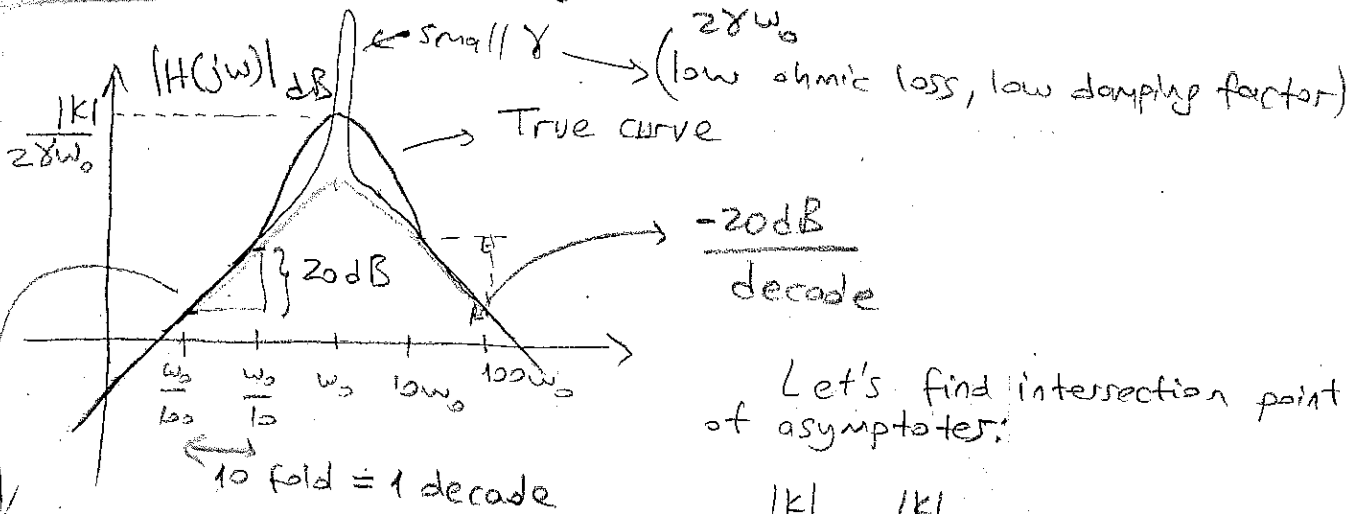 2γω₀
small γ
(low ohmic loss, low damping factor)
|H(jω)|dB
|k|
2γω₀
True curve
-20dB
decade
20dB
ω₀/100 ω₀/10 ω₀ 10ω₀ 100ω₀
10 fold = 1 decade
Let's find intersection point
of asymptotes:
|k| |k|